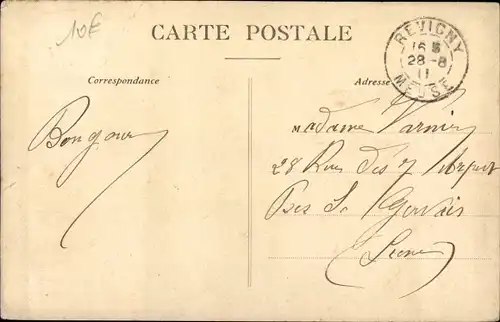 10€
CARTE POSTALE
REVIGNY
16
28-8
11
MEUSE
Correspondance
Adresse
Bonjour
Madame Varnier
28 Rue des 7 Arpents
Près St Gervais
(Seine)